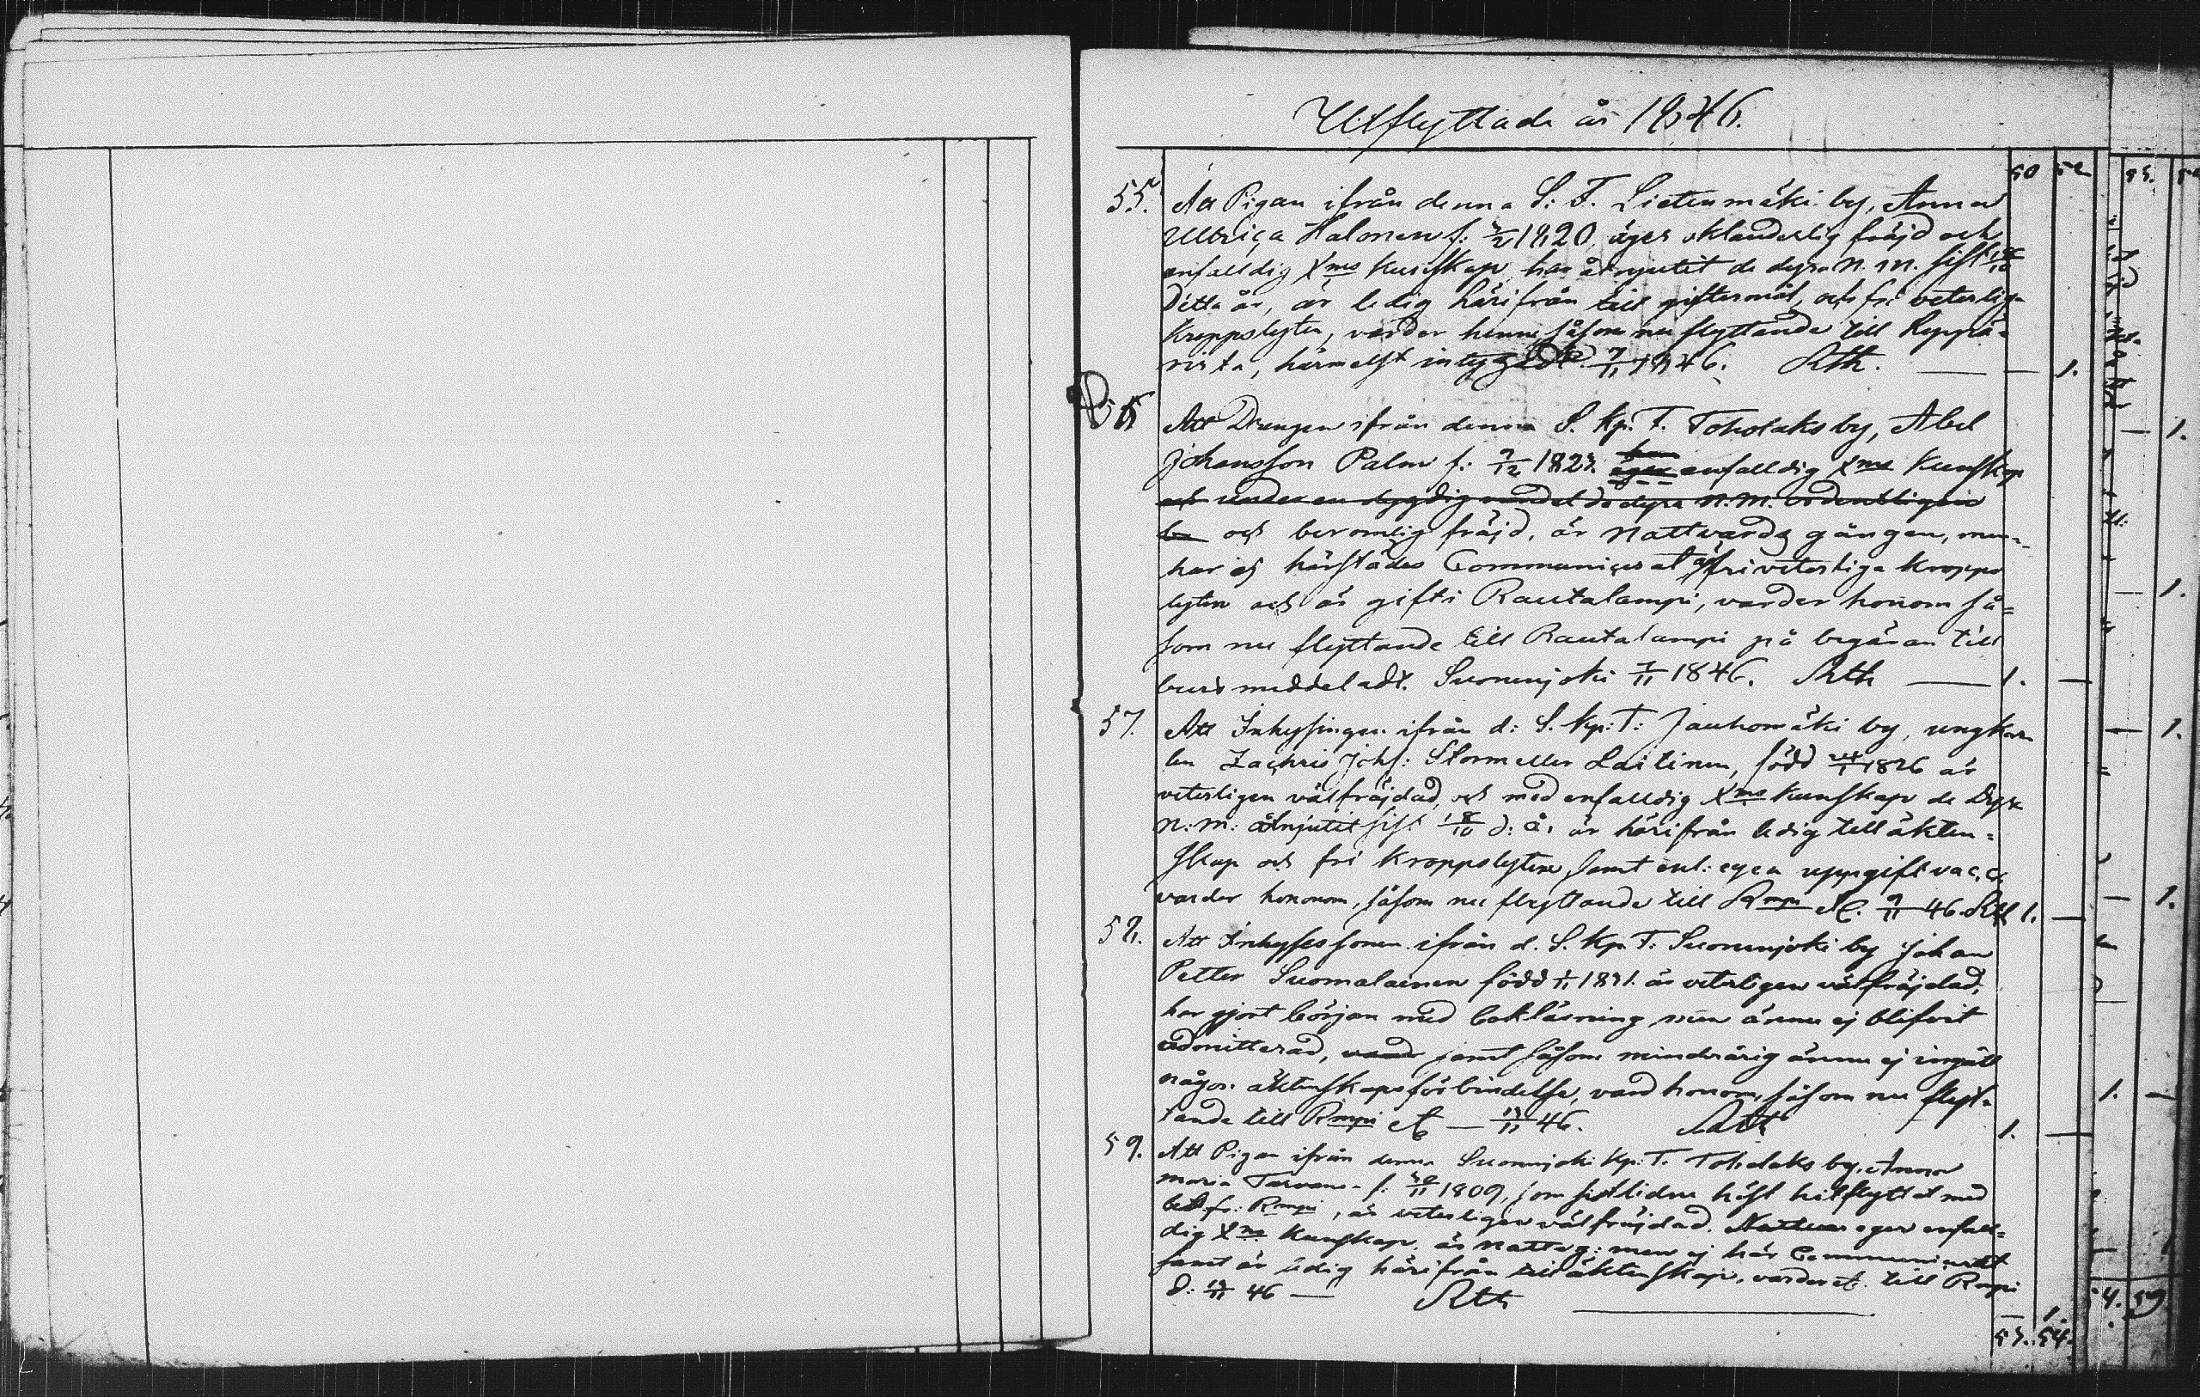 Utflyttade år 1846.
50 52
55. Att Pigan ifrån denna S: T. Lietenmäki by, Anna
Ulbriça Halonen f: 1820, äger oklanderlig fräjd och
enfalldig Xms Kunskap, har åtnjutit de dyra N. M. sist
Detta år, är ledig härifrån till giftermål, och fri veterlig
Kroppslyten, varder henne såsom nu flyttande till Leppä-
virta, härmelst intygadt. 7/11 1846. Rth. — 1.
56 Att Drengen ifrån denna S. Kp. T. Toholaks by, Abel
Johansson Palm f: 7/12 1823. äger enfalldig Xms Kunskap
och under en dygdig vandel de dyra N. M. ordentligen
be och beromlig fräjd, är Nattvards gången, men
har ej härstädes Communiçerat är fri veterliga Kropps
lyten och är gift i Rautalampi, varder honom så=
som nu flyttande till Rautalampi på begäran till
burd meddeladt. Suonenjoki 7/11 1846. Rth — 1. —
57. Att Inhysingen ifrån d: S. Kp: T: Jauhomäki by, ungkar
len Zachris Johs: Storm eller Laitinen, född 1826 är
veterligen välfräjdad, och med enfalldig Xms Kunskap de Dyra
N: M: åtnjutit sist 18/10 d: å. är härifrån ledig till äkten=
skap och fri Kroppslyten, samt enl: egen uppgift vacc.
varder honom, såsom nu flyttande till Rmpi etc. 9/11 46. Rth 1. —
58. Att Inhyses sonen ifrån d. S. Kp T: Suonenjoki by Johan
Petter Suomalainen född 1831. är veterligen välfräjdad,
har gjort början med bokläsning men ännu ej blifvit
admitterad, vard samt såsom minderårig ännu ej ingått
någon äktenskapsförbindelse, vard honom, såsom nu flyt=
tande till Rmpi etc — 13/11 46. Rth 1. —
59. Att Pigan ifrån denna Suonenjoki Kp: T. Toholaks by, Anna
Maria Tarvane f: 1809, som sistlidne höst hitflyttat med
bet fr: Rmpi, är veterligen välfräjdad. Nattvar eger enfall=
dig Xms Kunskap. är Nattvg: men ej här Communicerat
samt är ledig härifrån till äktenskap, varder etc. till Rmpi
d: 13/11 46 — Rth
53. 54.